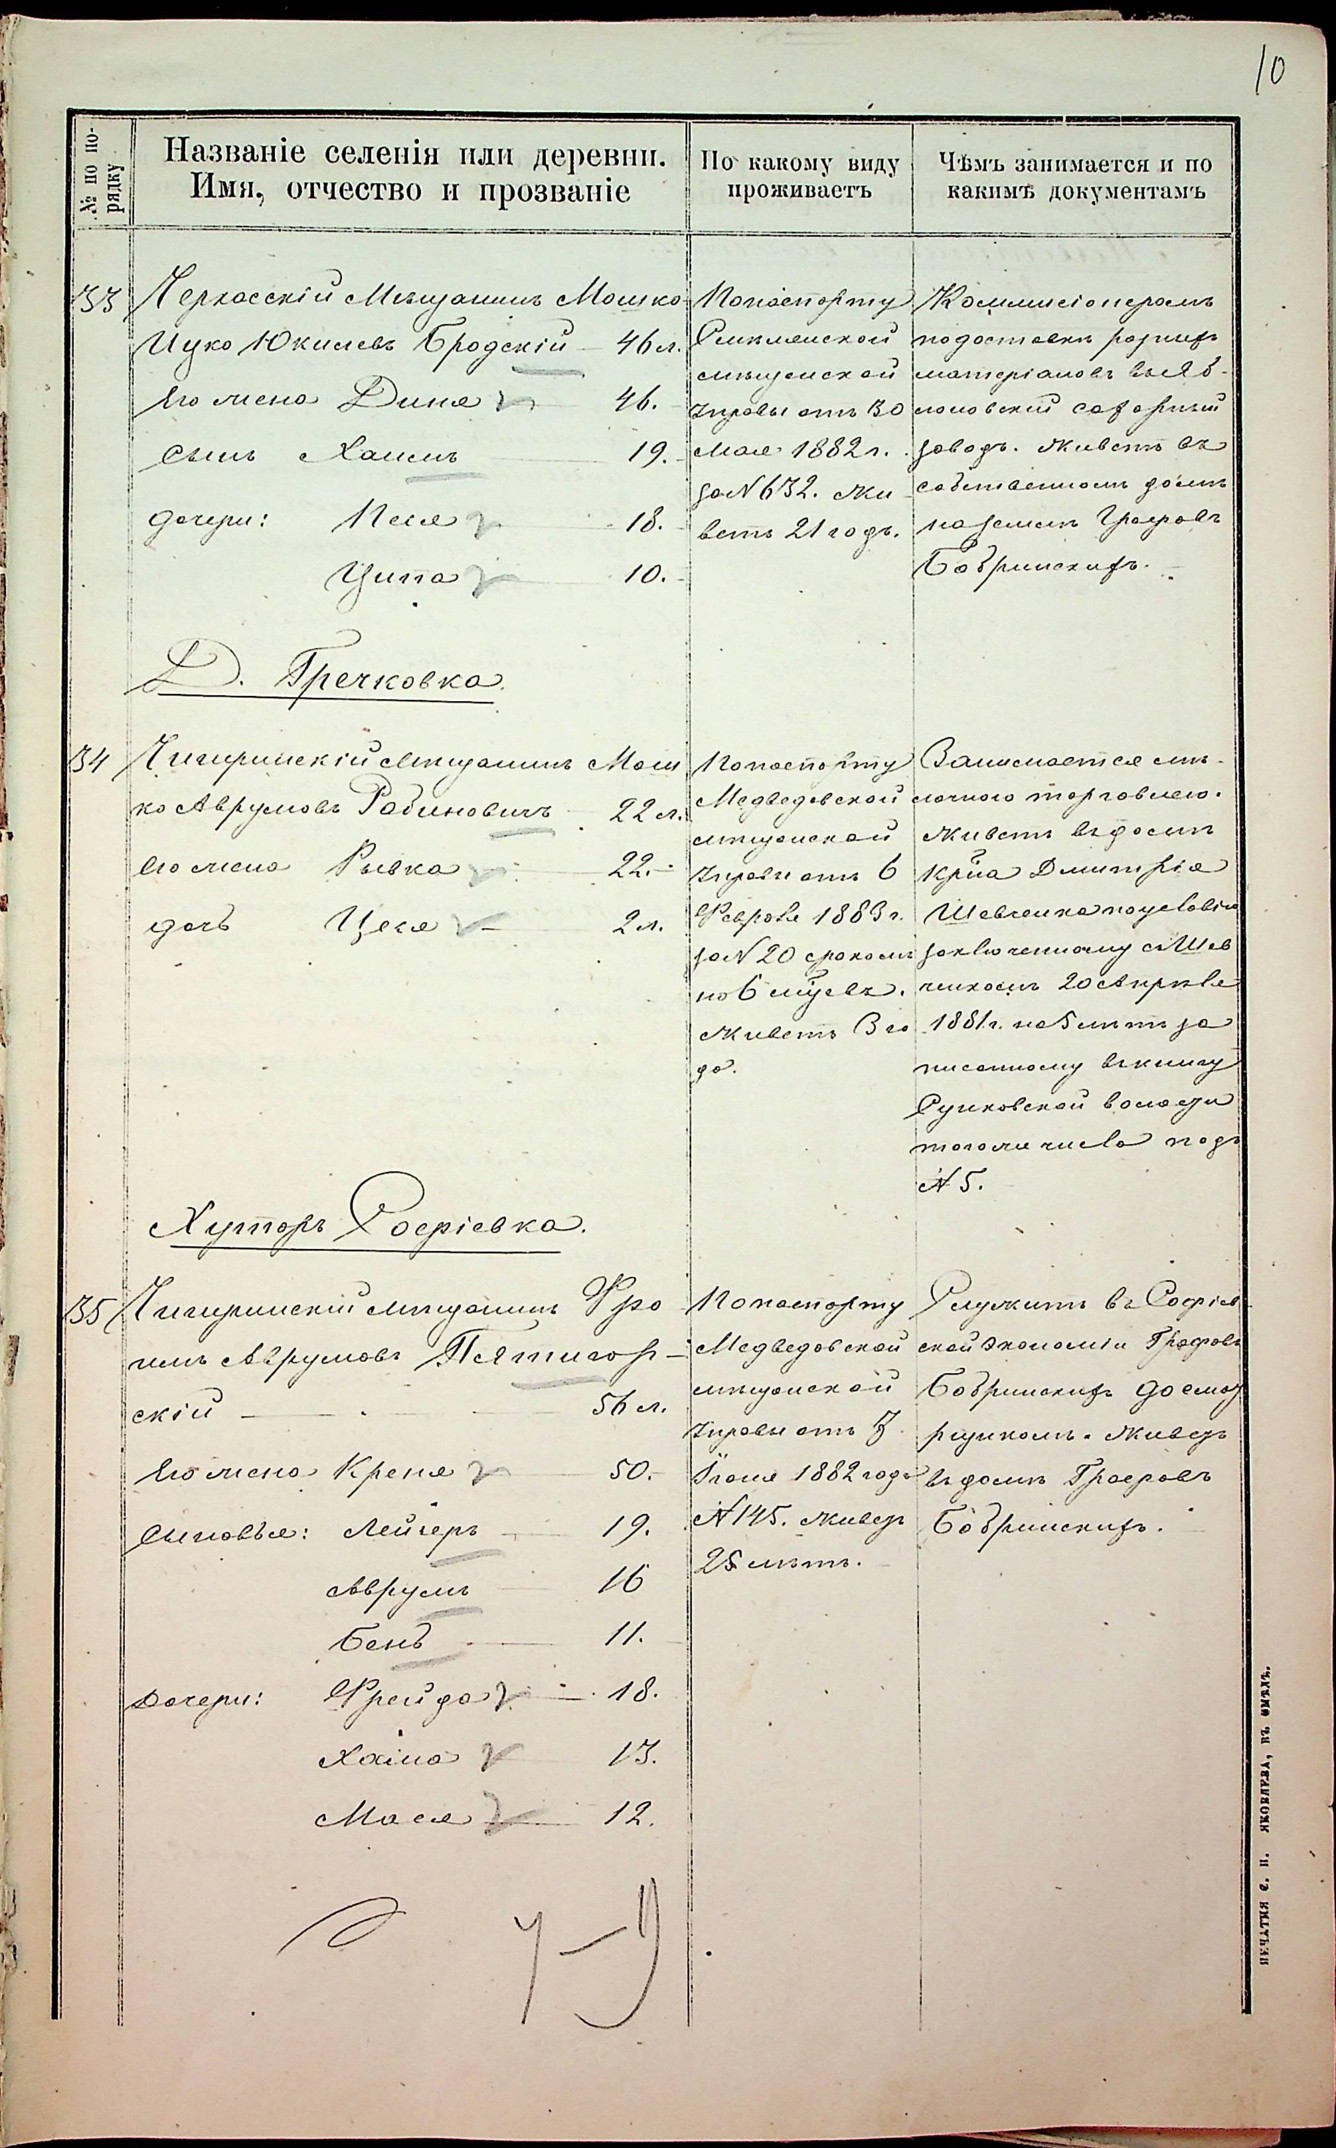 10
№ по по-
рядку
Названіе селенія или деревни.
Имя, отчество и прозваніе
По какому виду
проживаетъ
Чѣмъ занимается и по
какимъ документамъ
33
Черкасскій Мѣщанинъ Мошко
Ицко Юкилевъ Бродскій 46 л.
Его жена Диня 46.
Сынъ Хаимъ 19.
дочери: Песя 18.
Ципа 10.
По паспорту
Смѣлянской
мѣщанской
управы отъ 30
Мая 1882 г.
за № 632. Жи
ветъ 21 годъ.
Коммисіонеромъ
по доставки разныхъ
матеріаловъ въ Яб-
лоновскій сахарный
заводъ. Живетъ въ
собственномъ домѣ
на землѣ Графовъ
Бобринскихъ.
Д. Гречковка.
34
Чигиринскій мѣщанинъ Мош
ко Аврумовъ Рабиновичъ 22 л.
Его жена Рывка 22.
дочь Цеся 2 л.
По паспорту
Медведовской
мѣщанской
управы отъ 6
Февраля 1883 г.
за № 20 срокомъ
на 6 мѣс̃въ.
Живетъ 3 го
да.
Занимается мѣ-
лочною торговлею.
Живетъ въ домѣ
кр̃на Дмитрія
Шевченка по условію
заключенному съ Шев
ченкомъ 20 Апрѣля
1881 г. на 5 лѣтъ за
писанному въ книгу
Сунковской волости
того же числа подъ
№ 5.
Хуторъ Софіевка.
35
Чигиринскій мѣщанинъ Фро
имъ Аврумовъ Пятигор-
скій 56 л.
Его жена Креня 50.
Сыновья: Лейзеръ 19.
Аврумъ 16
Бенъ 11.
Дочери: Фрейда 18.
Хаина 13.
Мася 12.
По паспорту
Медведовской
мѣщанской
управы отъ 7
Іюля 1882 года
№ 145. Живетъ
25 лѣтъ.
Служитъ въ Софіев-
ской экономіи Графовъ
Бобринскихъ досмот
рщикомъ. Живетъ
въ домѣ Графовъ
Бобринскихъ.
ПЕЧАТНЯ С. П. ЯКОВЛЕВА, ВЪ